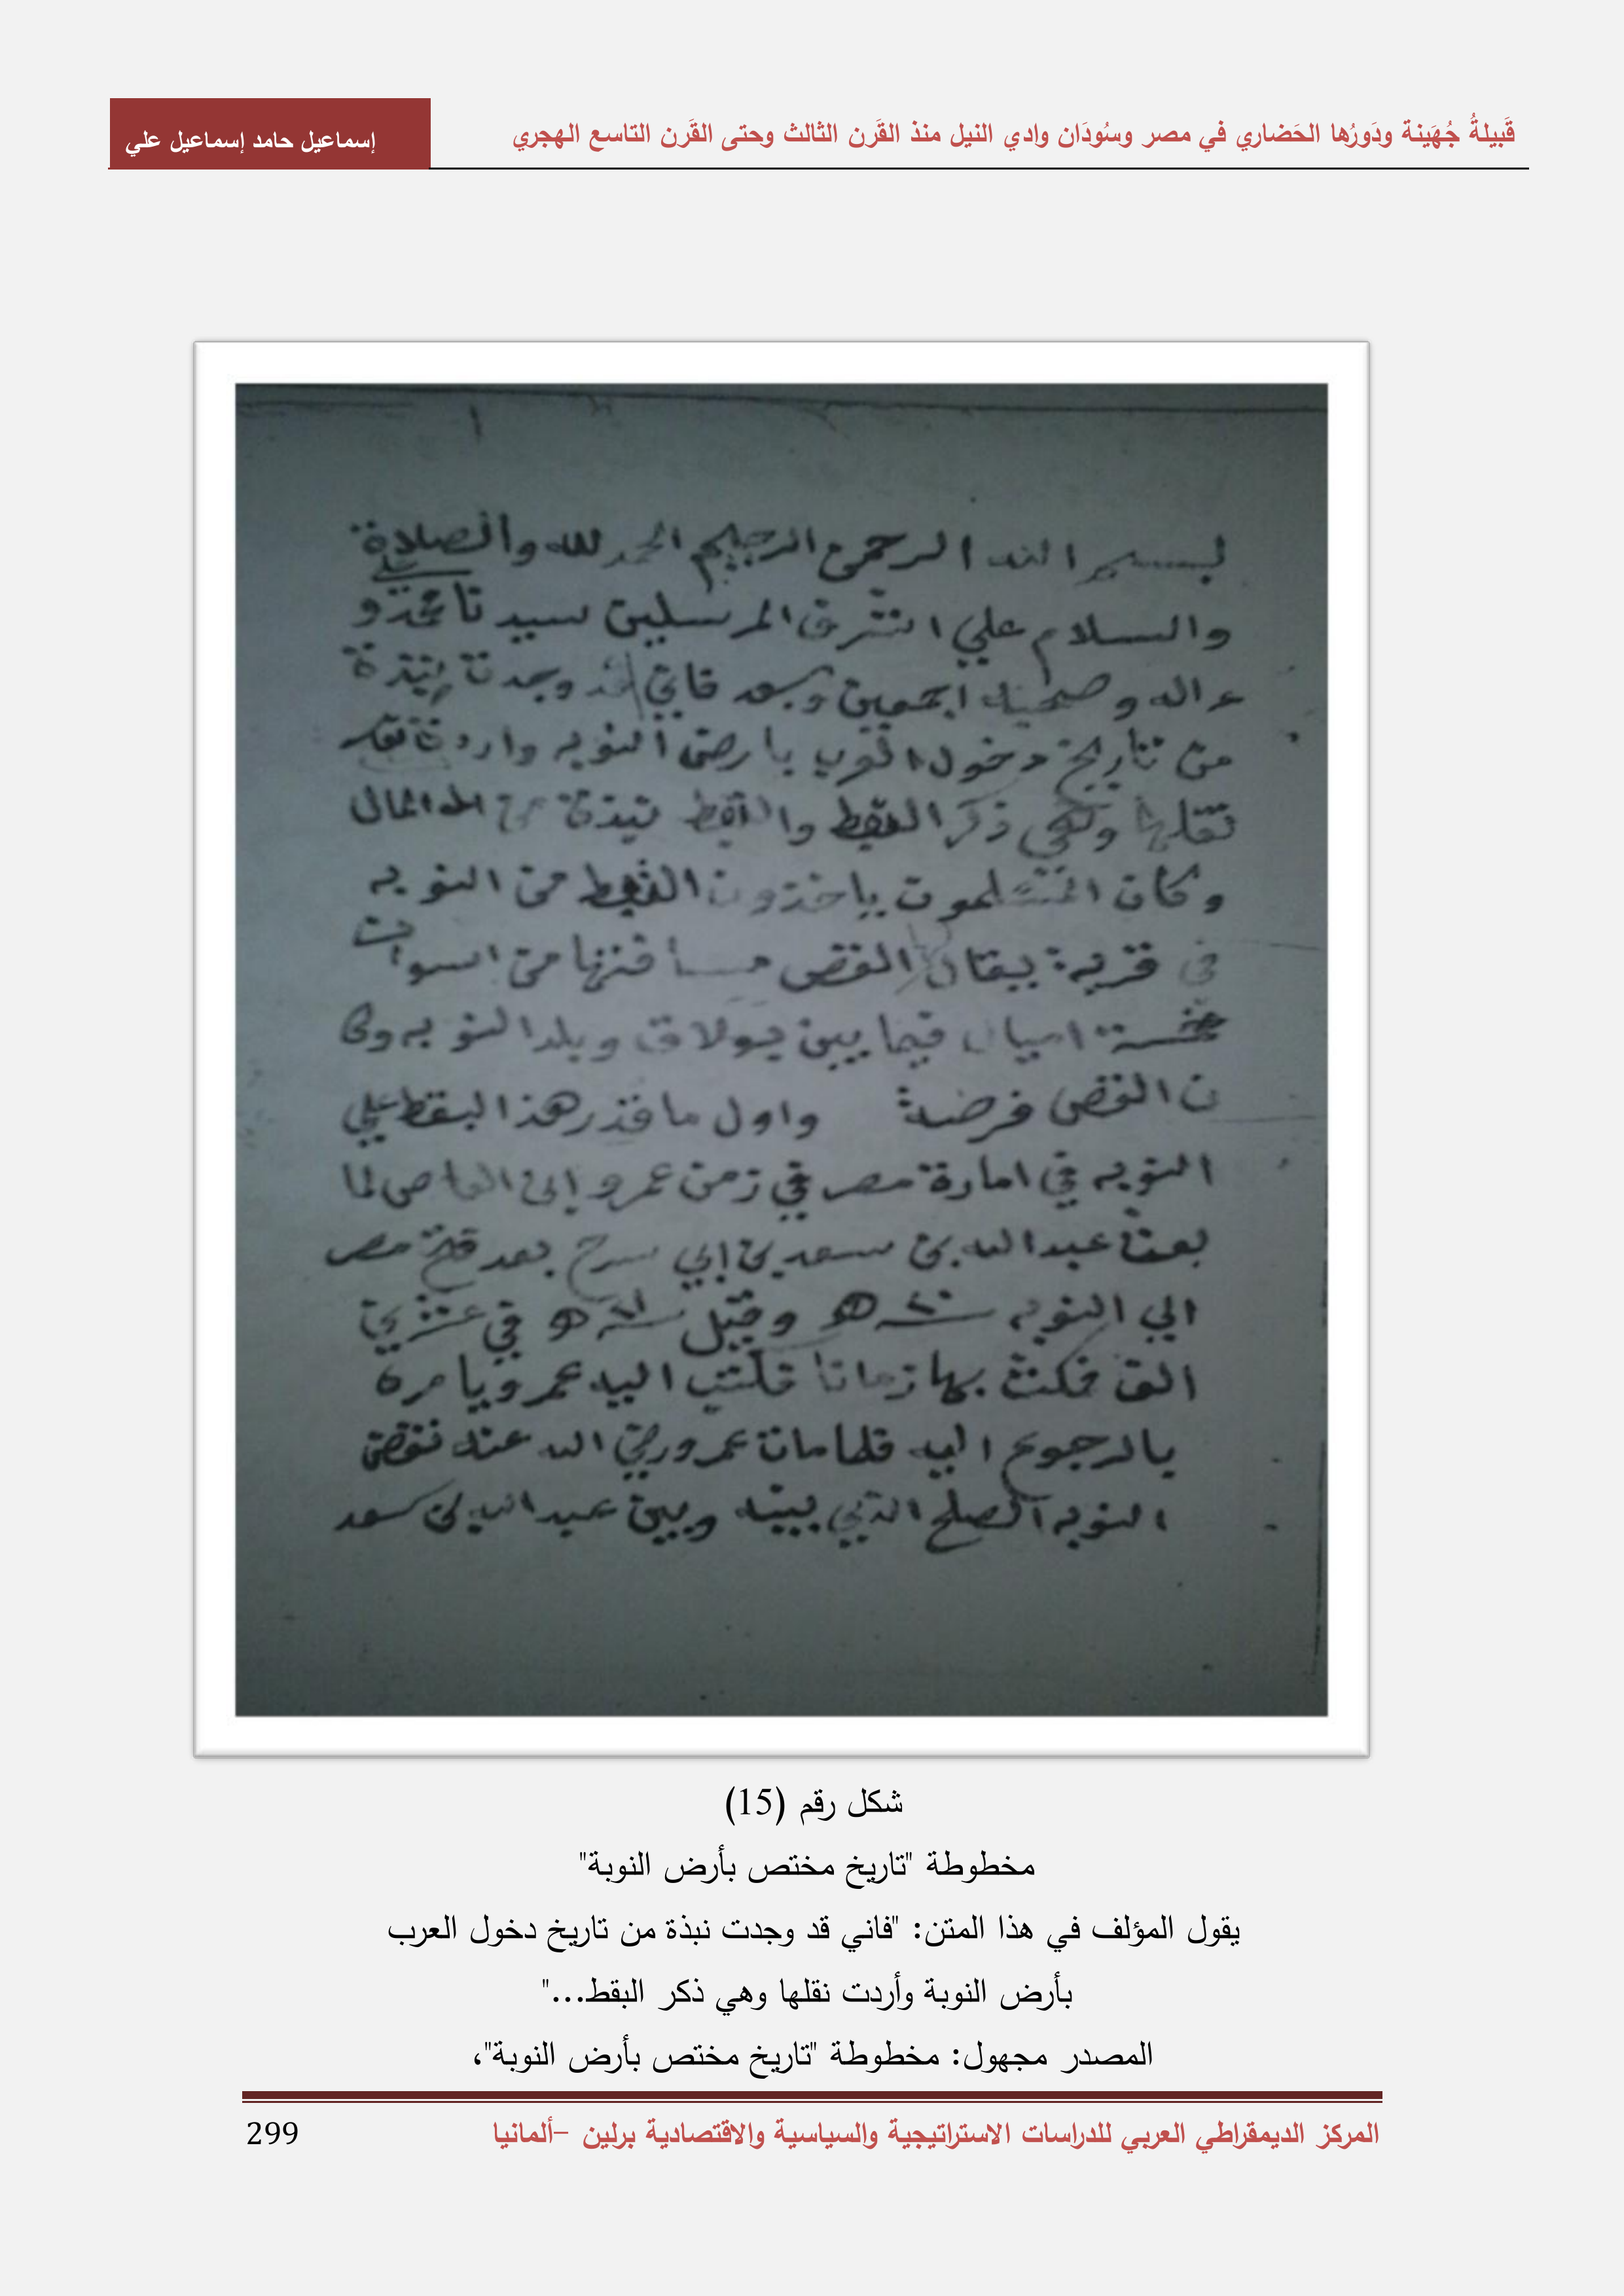 قَبيلةُ جُهَينة ودَورُها الحَضاري في مصر وسُودَان وادي النيل منذ القَرن الثالث وحتى القَرن التاسع الهجري
إسماعيل حامد إسماعيل علي
بسم الله الرحمن الرحيم الحمد لله والصلاة
والسلام علي اشرف المرسلين سيدنا محمد و
علي
ءاله وصحبه اجمعين وبعد فاني قد وجدت نبذة
من تاريخ دخول العرب بارض النوبه واردت
نقلها وهي ذكر البقط والبقط نبذة من المال
وكان المسلمون ياخذون البقط من النوبه
في قرية يقال القصر مسافتها من اسوان
خمسة اميال فيما بين بولاق وبلد النوبه وكا
ن القصر فرضة واول ما قذر هذ البقط علي
النوبه في امارة مصر في زمن عمرو ابن العاص لما
بعث عبد الله بن سعد بن ابي سرح بعد فتح مصر
الي النوبه سنة ٢٠ ه وقيل سنة ٢١ ه في عشرين
الف فمكث بها زمانا فكتب اليه عمرو يامره
بالرجوع اليه فلما مات عمرو رضي الله عنه نقض
النوبه الصلح الذي بينه وبين عبد الله بن سعد
شكل رقم (15)
مخطوطة "تاريخ مختص بأرض النوبة"
يقول المؤلف في هذا المتن: "فاني قد وجدت نبذة من تاريخ دخول العرب
بأرض النوبة وأردت نقلها وهي ذكر البقط..."
المصدر مجهول: مخطوطة "تاريخ مختص بأرض النوبة"،
المركز الديمقراطي العربي للدراسات الاستراتيجية والسياسية والاقتصادية برلين –ألمانيا
299